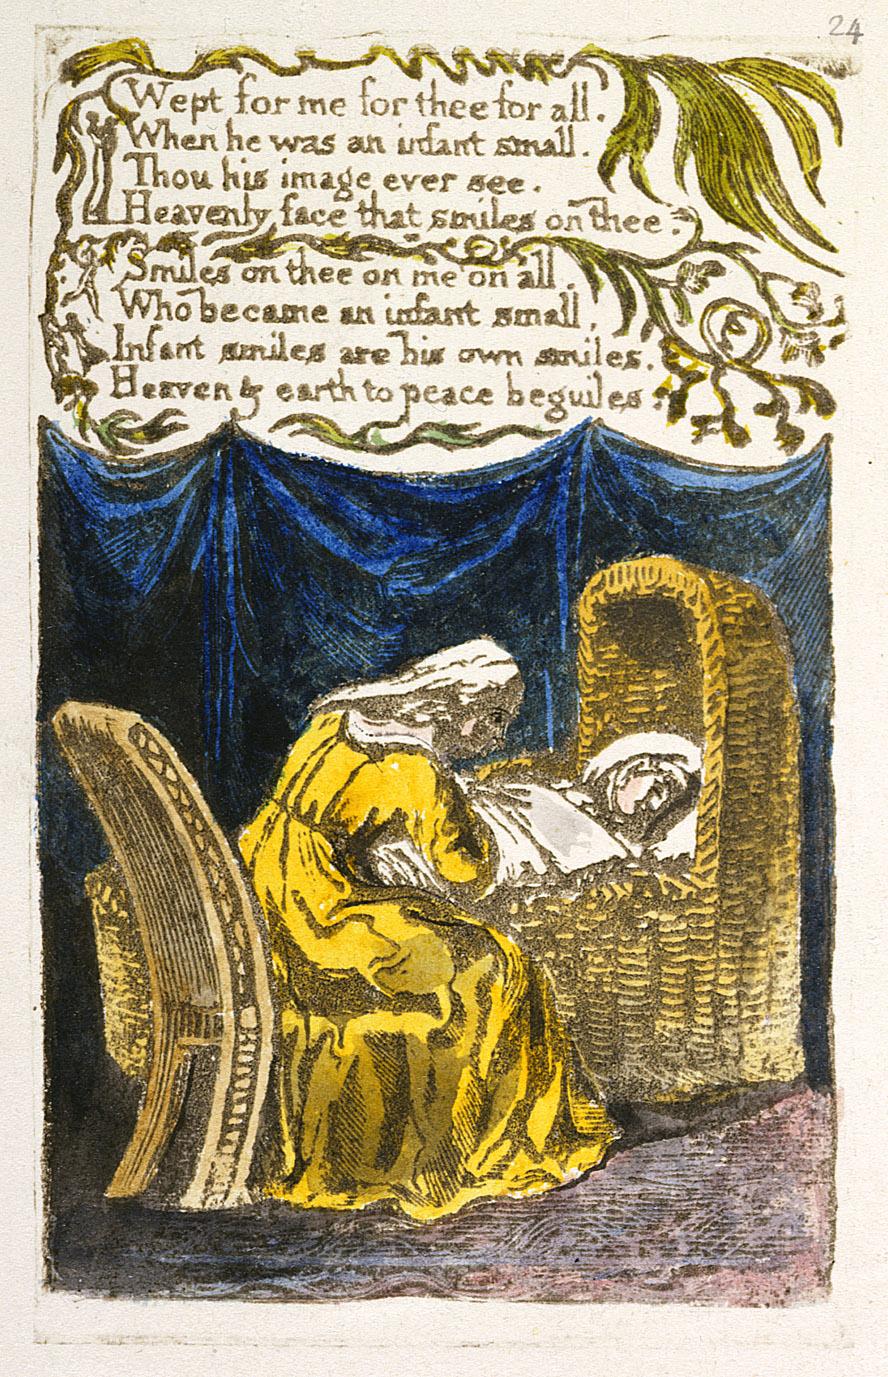 24
Wept for me for thee for all.
When he was an infant small.
Thou his image ever see.
Heavenly face that smiles on thee.
Smiles on thee on me on all.
Who became an infant small,
Infant smiles are his own smiles.
Heaven & earth to peace beguiles.